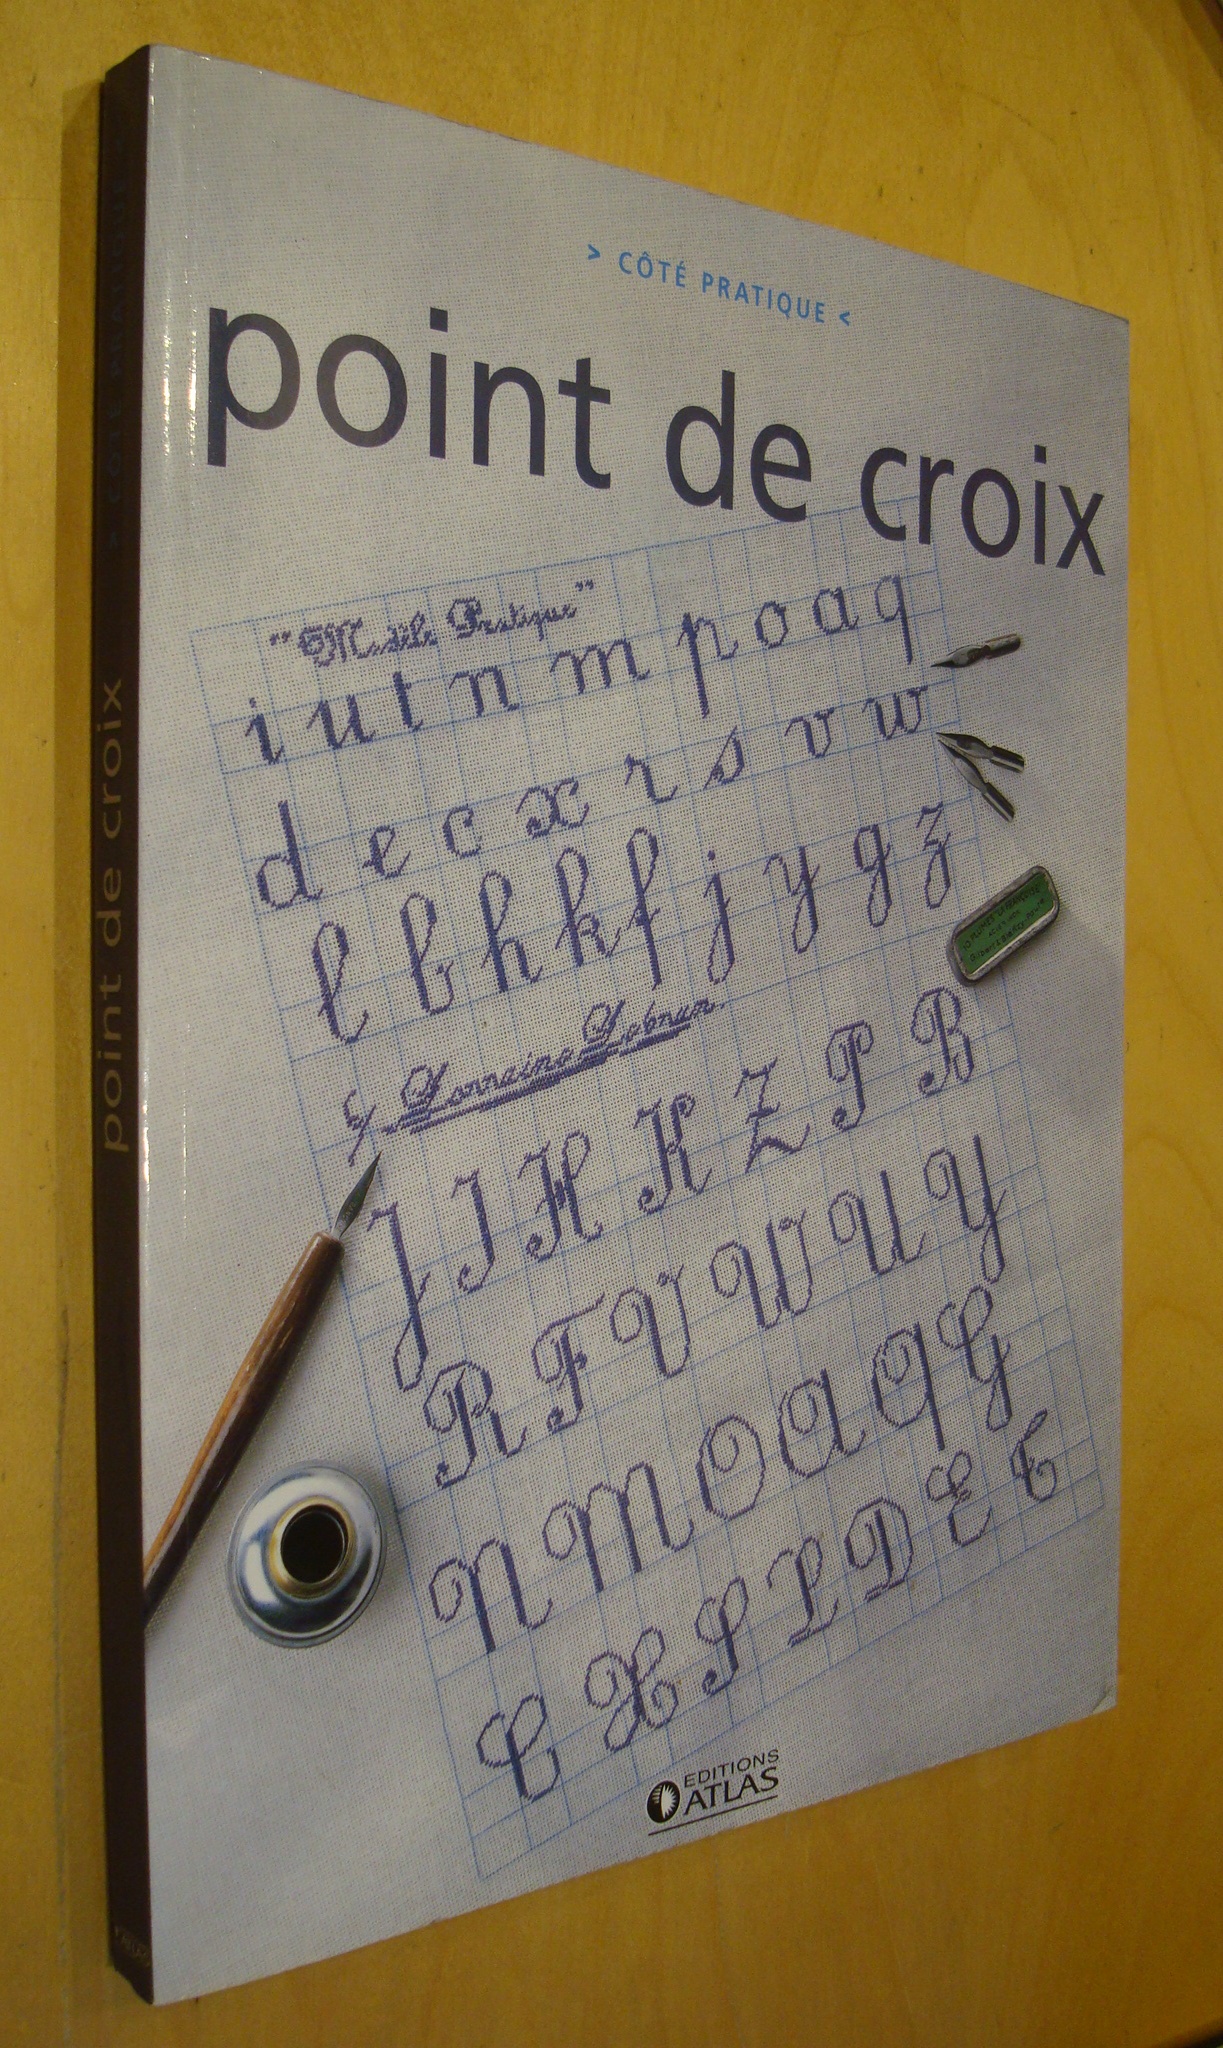 > CÔTÉ PRATIQUE <
point de croix
"Modèle Pratique"
i u t n m p o a q
d e c x r s v w
l b h k f j y g z
Lorraine
J I H K Z P B
R F V W U Y
N M O A Q G
C X S L D E T
EDITIONS
ATLAS
point de croix